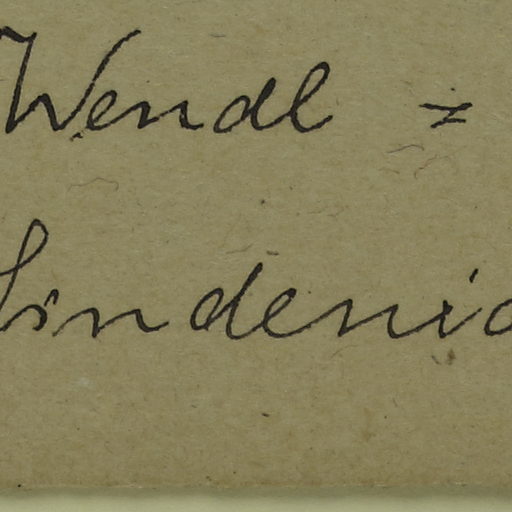 Wendl =
Lindenia